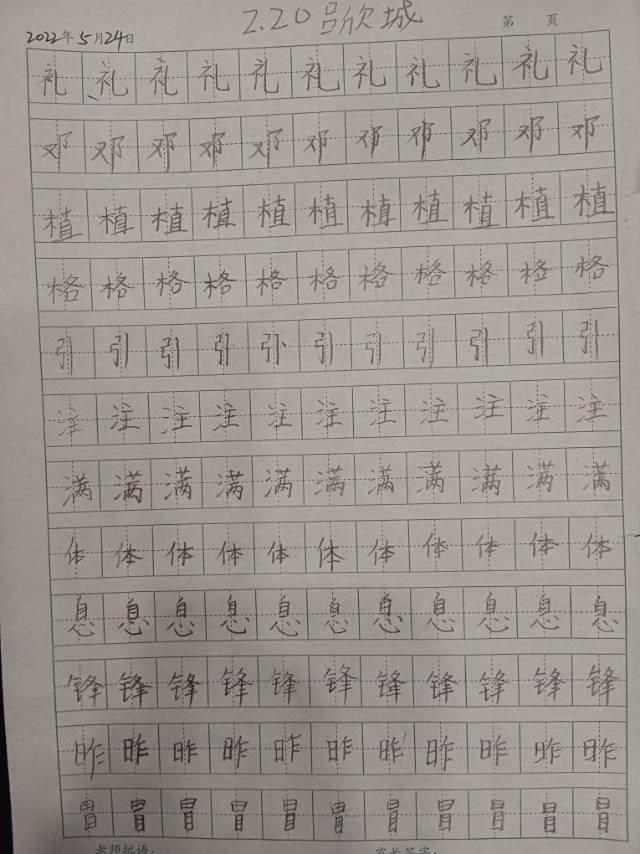 2.20吕欣城 第 页
2022年5月24日
礼礼礼礼礼礼礼礼礼礼礼
邓邓邓邓邓邓邓邓邓邓邓
植植植植植植植植植植植
格格格格格格格格格格格
引引引引引引引引引引引
注注注注注注注注注注注
满满满满满满满满满满满
体体体体体体体体体体体
息息息息息息息息息息息
锋锋锋锋锋锋锋锋锋锋锋
昨昨昨昨昨昨昨昨昨昨昨
冒冒冒冒冒冒冒冒冒冒冒
老师批语： 家长签字：